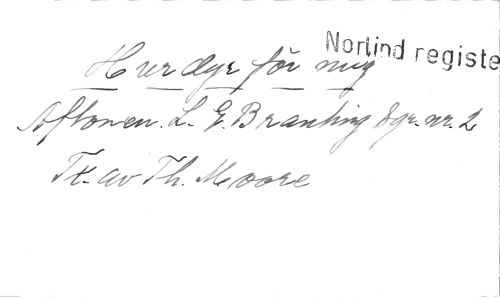 Norlind registe
Hur dyr för mig
Aftonen. L. G. Branting Dgr. nr. 2
Tx. av Th. Moore